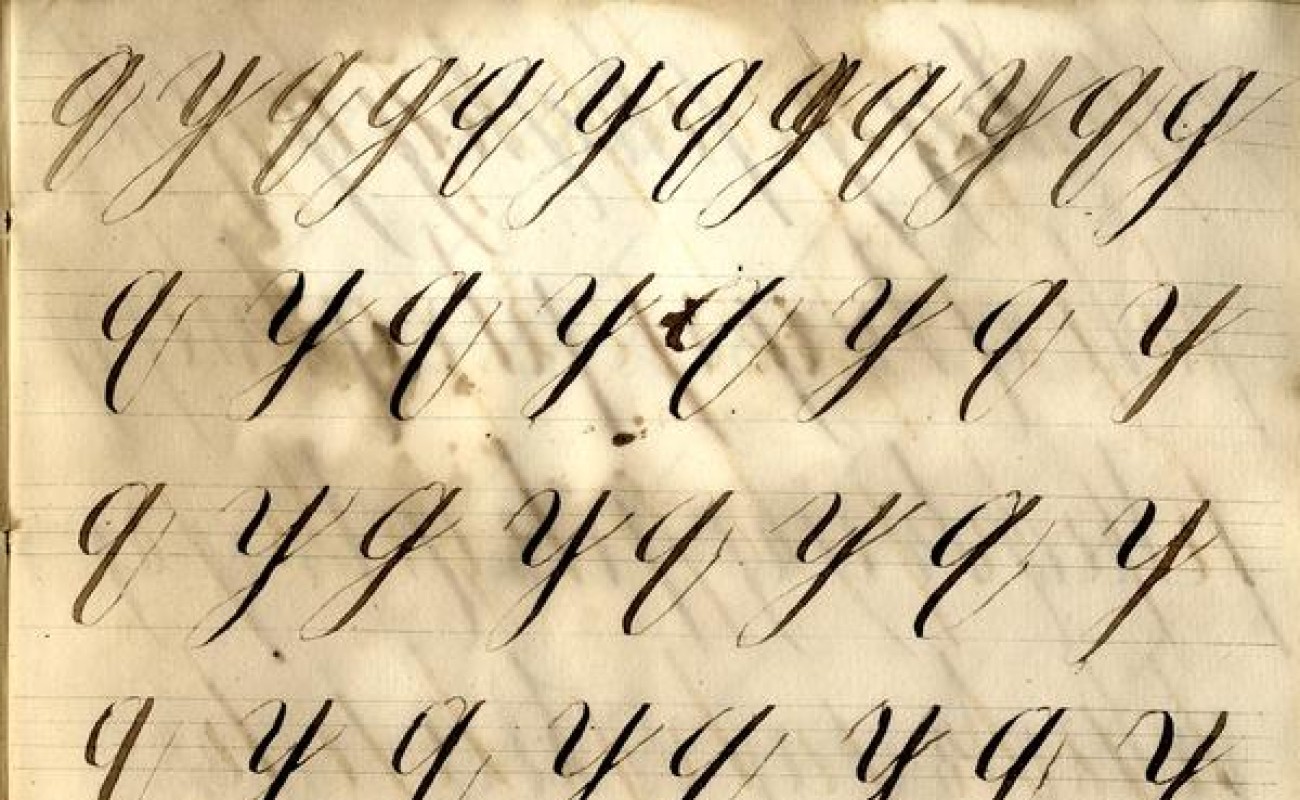 q y q g q y q g q y q g
q y q y q y q y
q y g y q y q y
q y q y q y q y